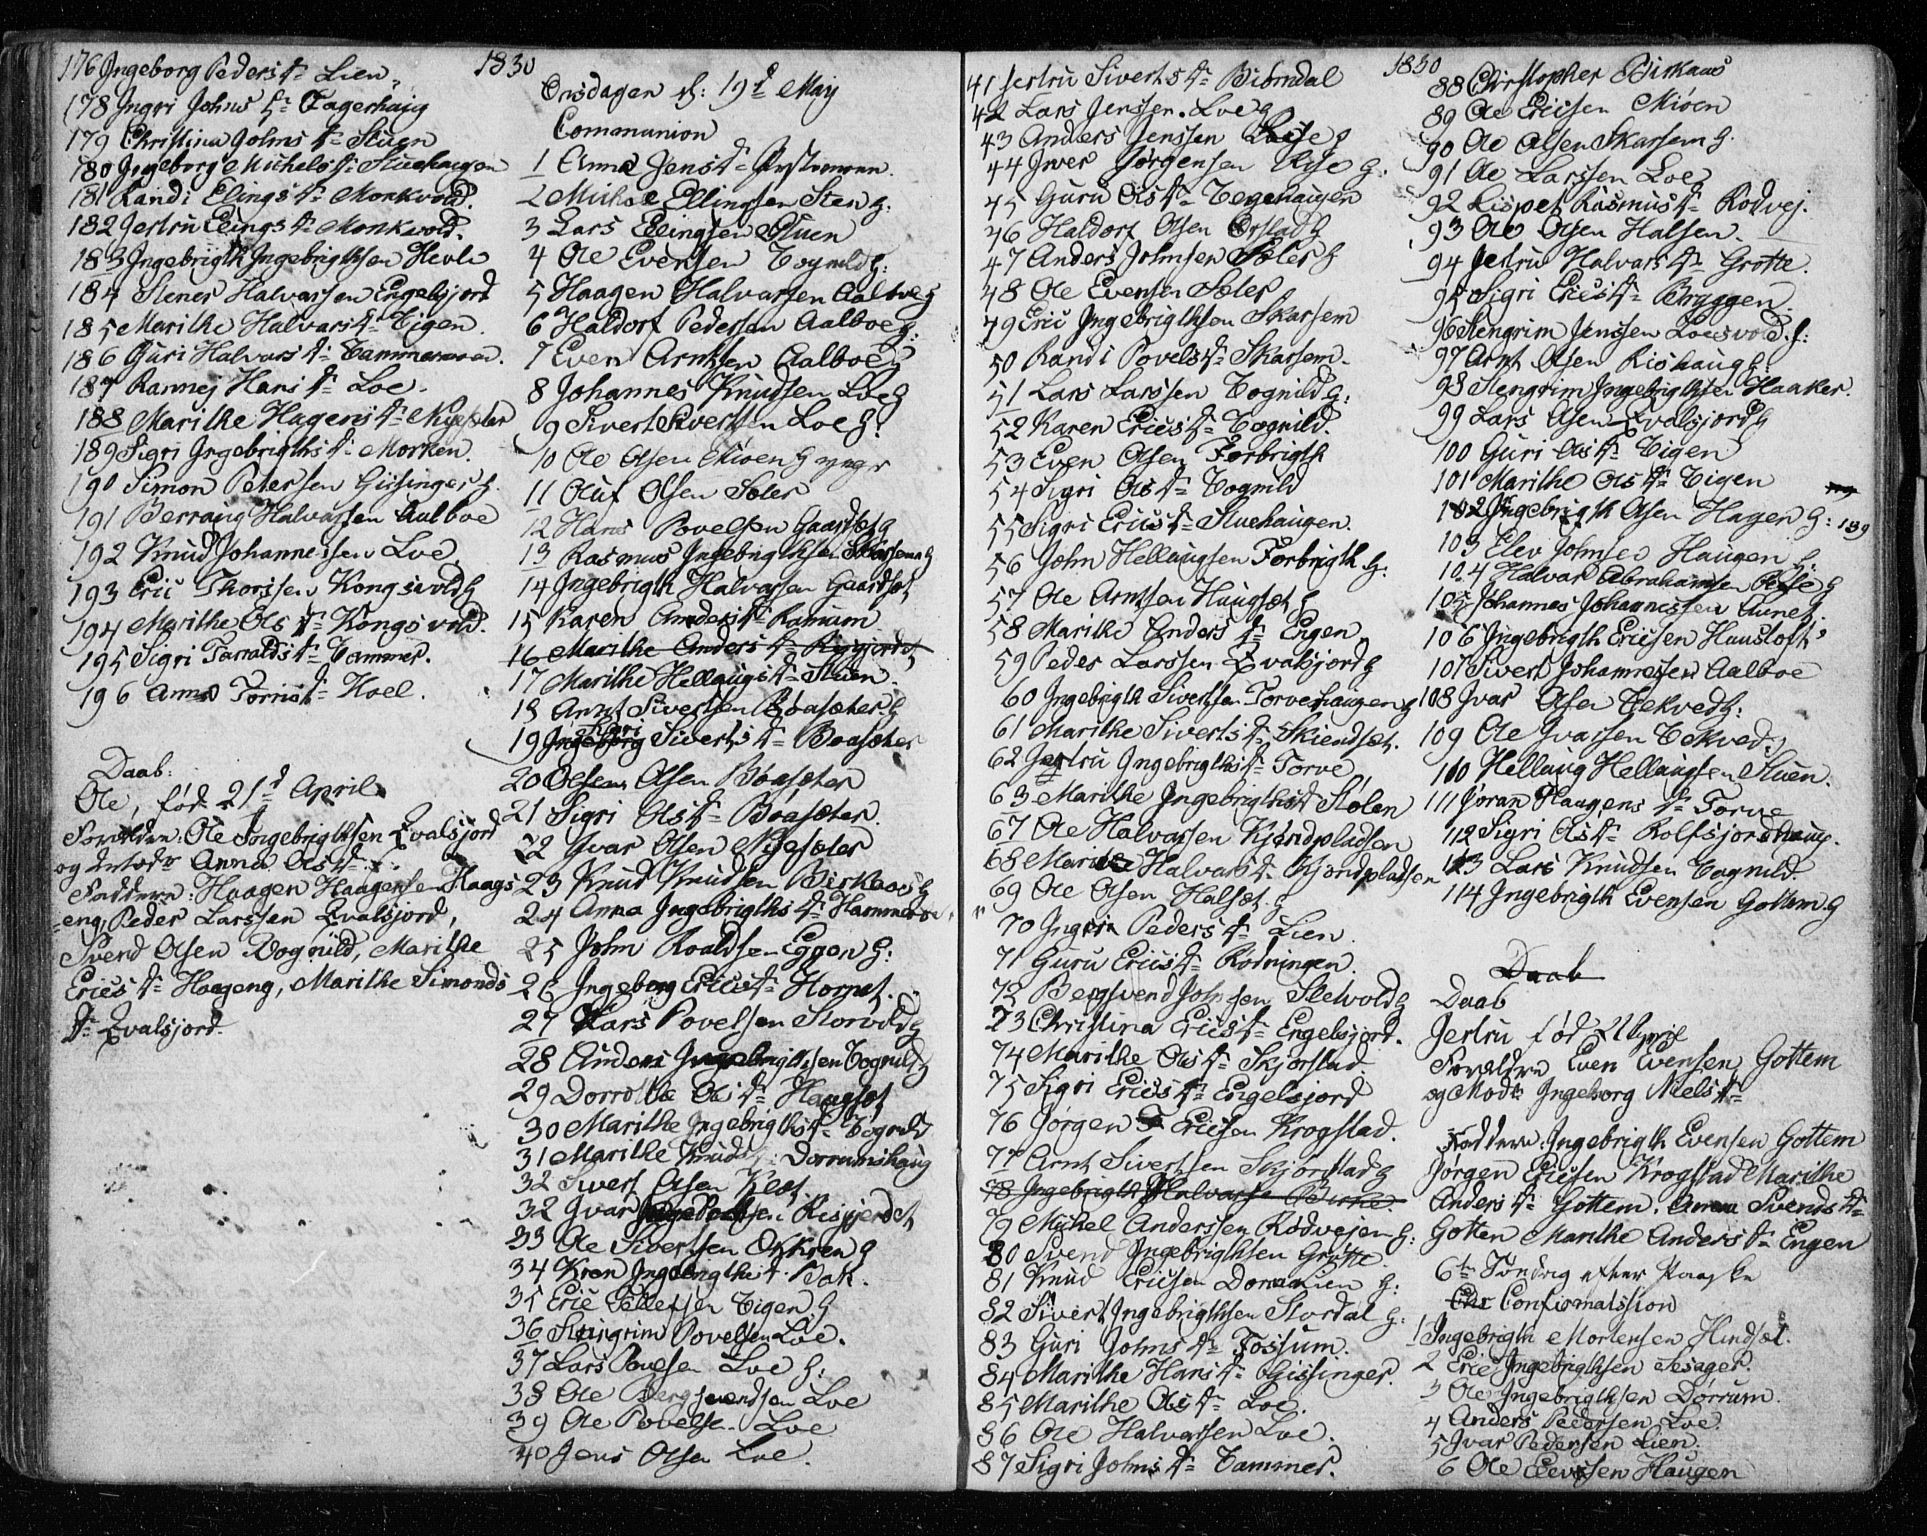 176 Ingeborg Peders dr Lien
178 Ingri Johns dr Fagerhaug
179 Christina Johns dr Stuen
180 Ingeborg Michels dr Stuehaugen
181 Randi Elings dr Monkvold.
182 Jertru Elings dr Monkvold.
183 Ingebrigth Ingebrigthsen Hevle
184 Stener Halvarsen Engelsjord
185 Marithe Halvars dr Eigen
186 Guri Halvars dr
187 Rannej Hans dr Loe
188 Marithe Hagens dr Nysæter
189 Sigri Ingebrigths dr Morken.
190 Simon Petersen Gissinger g.
191 Berraug Halvarsen Aalboe
192 Knud Johannessen Loe
193 Eric Thorssen Kongsvold g
194 Marithe Ols dr Kongsvold.
195 Sigri Taralds dr Tammer.
196 Anne Torris dr Hoel.
Daab:
Ole, fød 21d April
Forældre: Ole Ingebrigthsen Evalsjord
og Anna Ols dr
Faddere: Haagen Haagensen Haags
eng, Peder Larssen Evalsjord,
Svend Olsen Vognild, Marithe
Erics dr Haageng, Marithe Simonds
dr Evalsjord.
1830
Onsdagen d: 19d Maij
Communion
1 Anne Jens dr
2 Michel Ellingsen Sten g.
3 Lars Elingsen Stuen
4 Ole Evensen Vognild g:
5 Haagen Halvarsen Aalboe g
6 Haldorf Pedersen Aalboe g:
7 Even Arntsen Aalboe g
8 Johannes Knudsen Loe g
9 Sivert Sivertsen Loe g.
10 Ole Olsen Mioen g
11 Oluf Olsen Sæter
12 Hans Povelsen Gaardset g
13 Rasmus Ingebrigthsen Skarsem g
14 Ingebrigth Halvarsen Gaardset
15 Karen Anders dr Ramum
16 Marithe Anders dr Rysjordet
17 Marithe Hellaugs dr Stuen.
18 Arnt Sivertsen Boasæter g
19 Ingeborg Siverts dr Boasæter
20 Olsen Boasæter
21 Sigri Ols dr Boasæter.
22 Ivar Olsen Nysæter
23 Knud Knudsen Birkaas g
24 Anna Ingebrigths dr
25 John Roaldsen Eggen g:
26 Ingeborg Erics dr Hornet.
27 Lars Povelsen Storvold g
28 Anders Ingebrigthsen Vognild g
29 Dorrothe Ols dr Haugset
30 Marithe Ingebrigths dr Vognild
31 Marithe Knuds dr Dorrumshaug
32 Sivert Olsen Klet
32 Ivar Risgjerdet
33 Ole Sivertsen g
34 Kren Ingebrigths dr Bak.
35 Eric Tellefsen Eigen g
36 Stengrim Povelsen Loe.
37 Lars Povelsen Loe g:
38 Ole Bergsvendsen Loe
39 Ole Povelsen Loe
40 Jens Olsen Loe.
41 Jertru Siverts dr Biorndal
42 Lars Jenssen Loe g
43 Anders Jenssen Rise g
44 Iver Jørgensen Rise g.
45 Guru Ols dr Vegehaugen
46 Haldorf Olsen g
47 Anders Johnsen Sæter g
48 Ole Evensen Sæter
49 Eric Ingebrigthsen Skarsem
50 Randi Povels dr Skarsem
51 Lars Larssen Vognild g:
52 Karen Erics dr Vognild.
53 Even Olsen Forbrigth
54 Sigri Ols dr Vognild
55 Sigri Erics dr Stuehaugen.
56 John Hellaugsen Forbrigth g:
57 Ole Arntsen Haugset g
58 Marithe Anders dr Engen
59 Peder Larssen Evalsjord g
60 Ingebrigth Sivertsen Torvehaugen g
61 Marithe Siverts dr Skiendset.
62 Jertru Ingebrigths dr Torve
63 Marithe Ingebrigths dr Stølen
67 Ole Halvarsen Kjøndpladsen
68 Marithe Halvars dr Kjøndpladsen
69 Ole Olsen Halset. g
70 Ingri Peders dr Lien
71 Guru Erics dr Rodningen
72 Bergsvend Johnsen Sletvold g
73 Christina Erics dr Engelsjord.
74 Marithe Ols dr Skjorstad
75 Sigri Erics dr Engelsjord
76 Jørgen Ericsen Krogstad.
77 Arnt Sivertsen Skjorstad g
78 Ingebrigth Halvarse
79 Michel Anderssen Rodvejen g:
80 Svend Ingebrigthsen Grøtte.
81 Knud Ericsen g:
82 Sivert Ingebrigthsen Stordal g:
83 Guri Johns dr Fossum.
84 Marithe Hans dr Gissinger.
85 Marithe Ols dr Loe.
86 Ole Halvarssen Loe.
87 Sigri Johns dr Tammer.
1830
88 Christopher Birkaas
89 Ole Ericsen Mioen
90 Ole Olsen Skarsem g.
91 Ole Larssen Loe
92 Lispet Rasmus dr Rodvej.
93 Ole Olsen Halsen.
94 Jertru Halvars dr Grøtte.
95 Sigri Erics dr Bryggen
96 Stengrim Jenssen Loesvold. g:
97 Arnt Olsen Rishaug g:
98 Stengrim Ingebrigthsen Haaker.
99 Lars Olsen Evalsjord g
100 Guri Ols dr Eigen
101 Marithe Ols dr Eigen
102 Ingebrigth Olsen Hagen g: 189
103 Elev Johnsen Haugen g.
104 Halvar Abrahamsen Rise g
105 Johannes Johannessen
106 Ingebrigth Ericsen Huusloft
107 Sivert Johannessen Aalboe
108 Ivar Olsen Vekved g:
109 Ole Ivarsen Vekved.
110 Hellaug Hellaugsen Stuen.
111 Joran Haagens dr Torve
112 Sigri Ols dr Rolfsjordhaug.
113 Lars Knudsen Vognild.
114 Ingebrigth Evensen Gottem g
Daab
Daab
Jertru fød
Forældre Even Evensen Gottem
og Mod: Ingeborg Niels dr
Faddere: Ingebrigth Evensen Gottem
Jørgen Ericsen Krogstad Marithe
Anders dr Gottem. Anna Svends dr
Gotten Marithe Anders dr Engen
6te Søndag efter Paaske
Confirmatssion
1 Ingebrigth Mortensen Hindset.
2 Eric Ingebrigthsen Sesager.
3 Ole Ingebrigthsen Dørrum.
4 Anders Pedersen Loe.
5 Ivar Pedersen Lien.
6 Ole Haugen